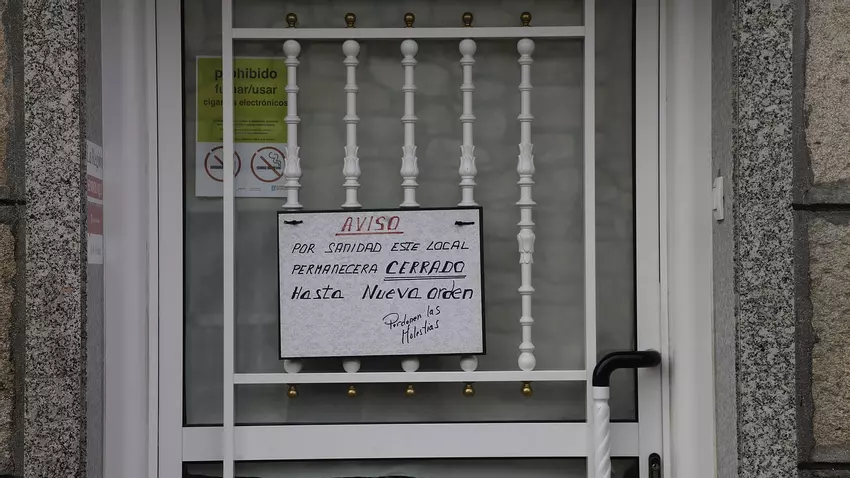 prohibido
fumar/usar
cigarros electrónicos
AVISO
POR SANIDAD ESTE LOCAL
PERMANECERA CERRADO
Hasta Nueva orden
Perdonen las
Molestias